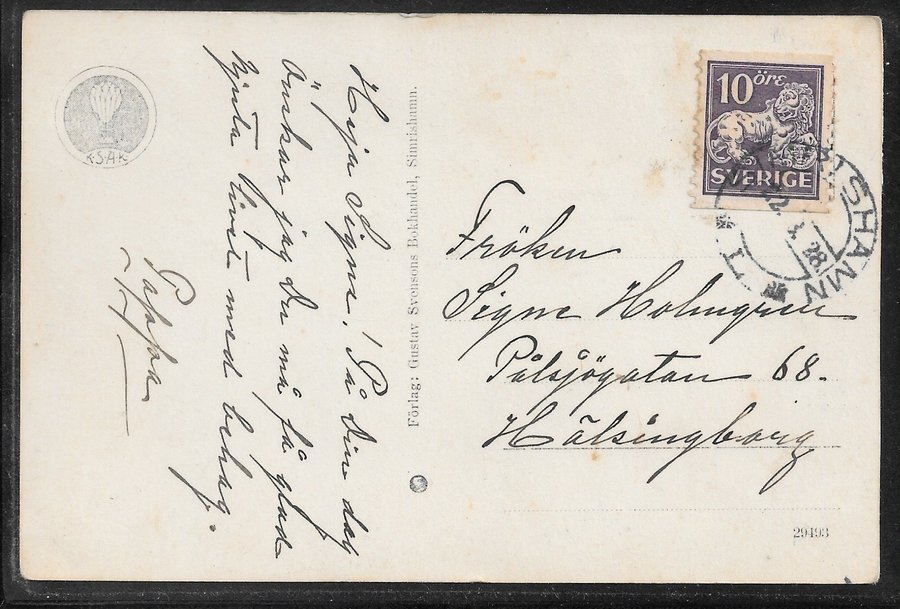 Heja Signe! På Din dag
Önskar jag Du må få glad
njuta livet med behag.
Pappa
Förlag: Gustav Svensons Bokhandel, Simrishamn.
K.S.A.K.
10 öre
SVERIGE
28
Fröken
Signe Holmgren
Pålsjögatan 68.
Hälsingborg
29493